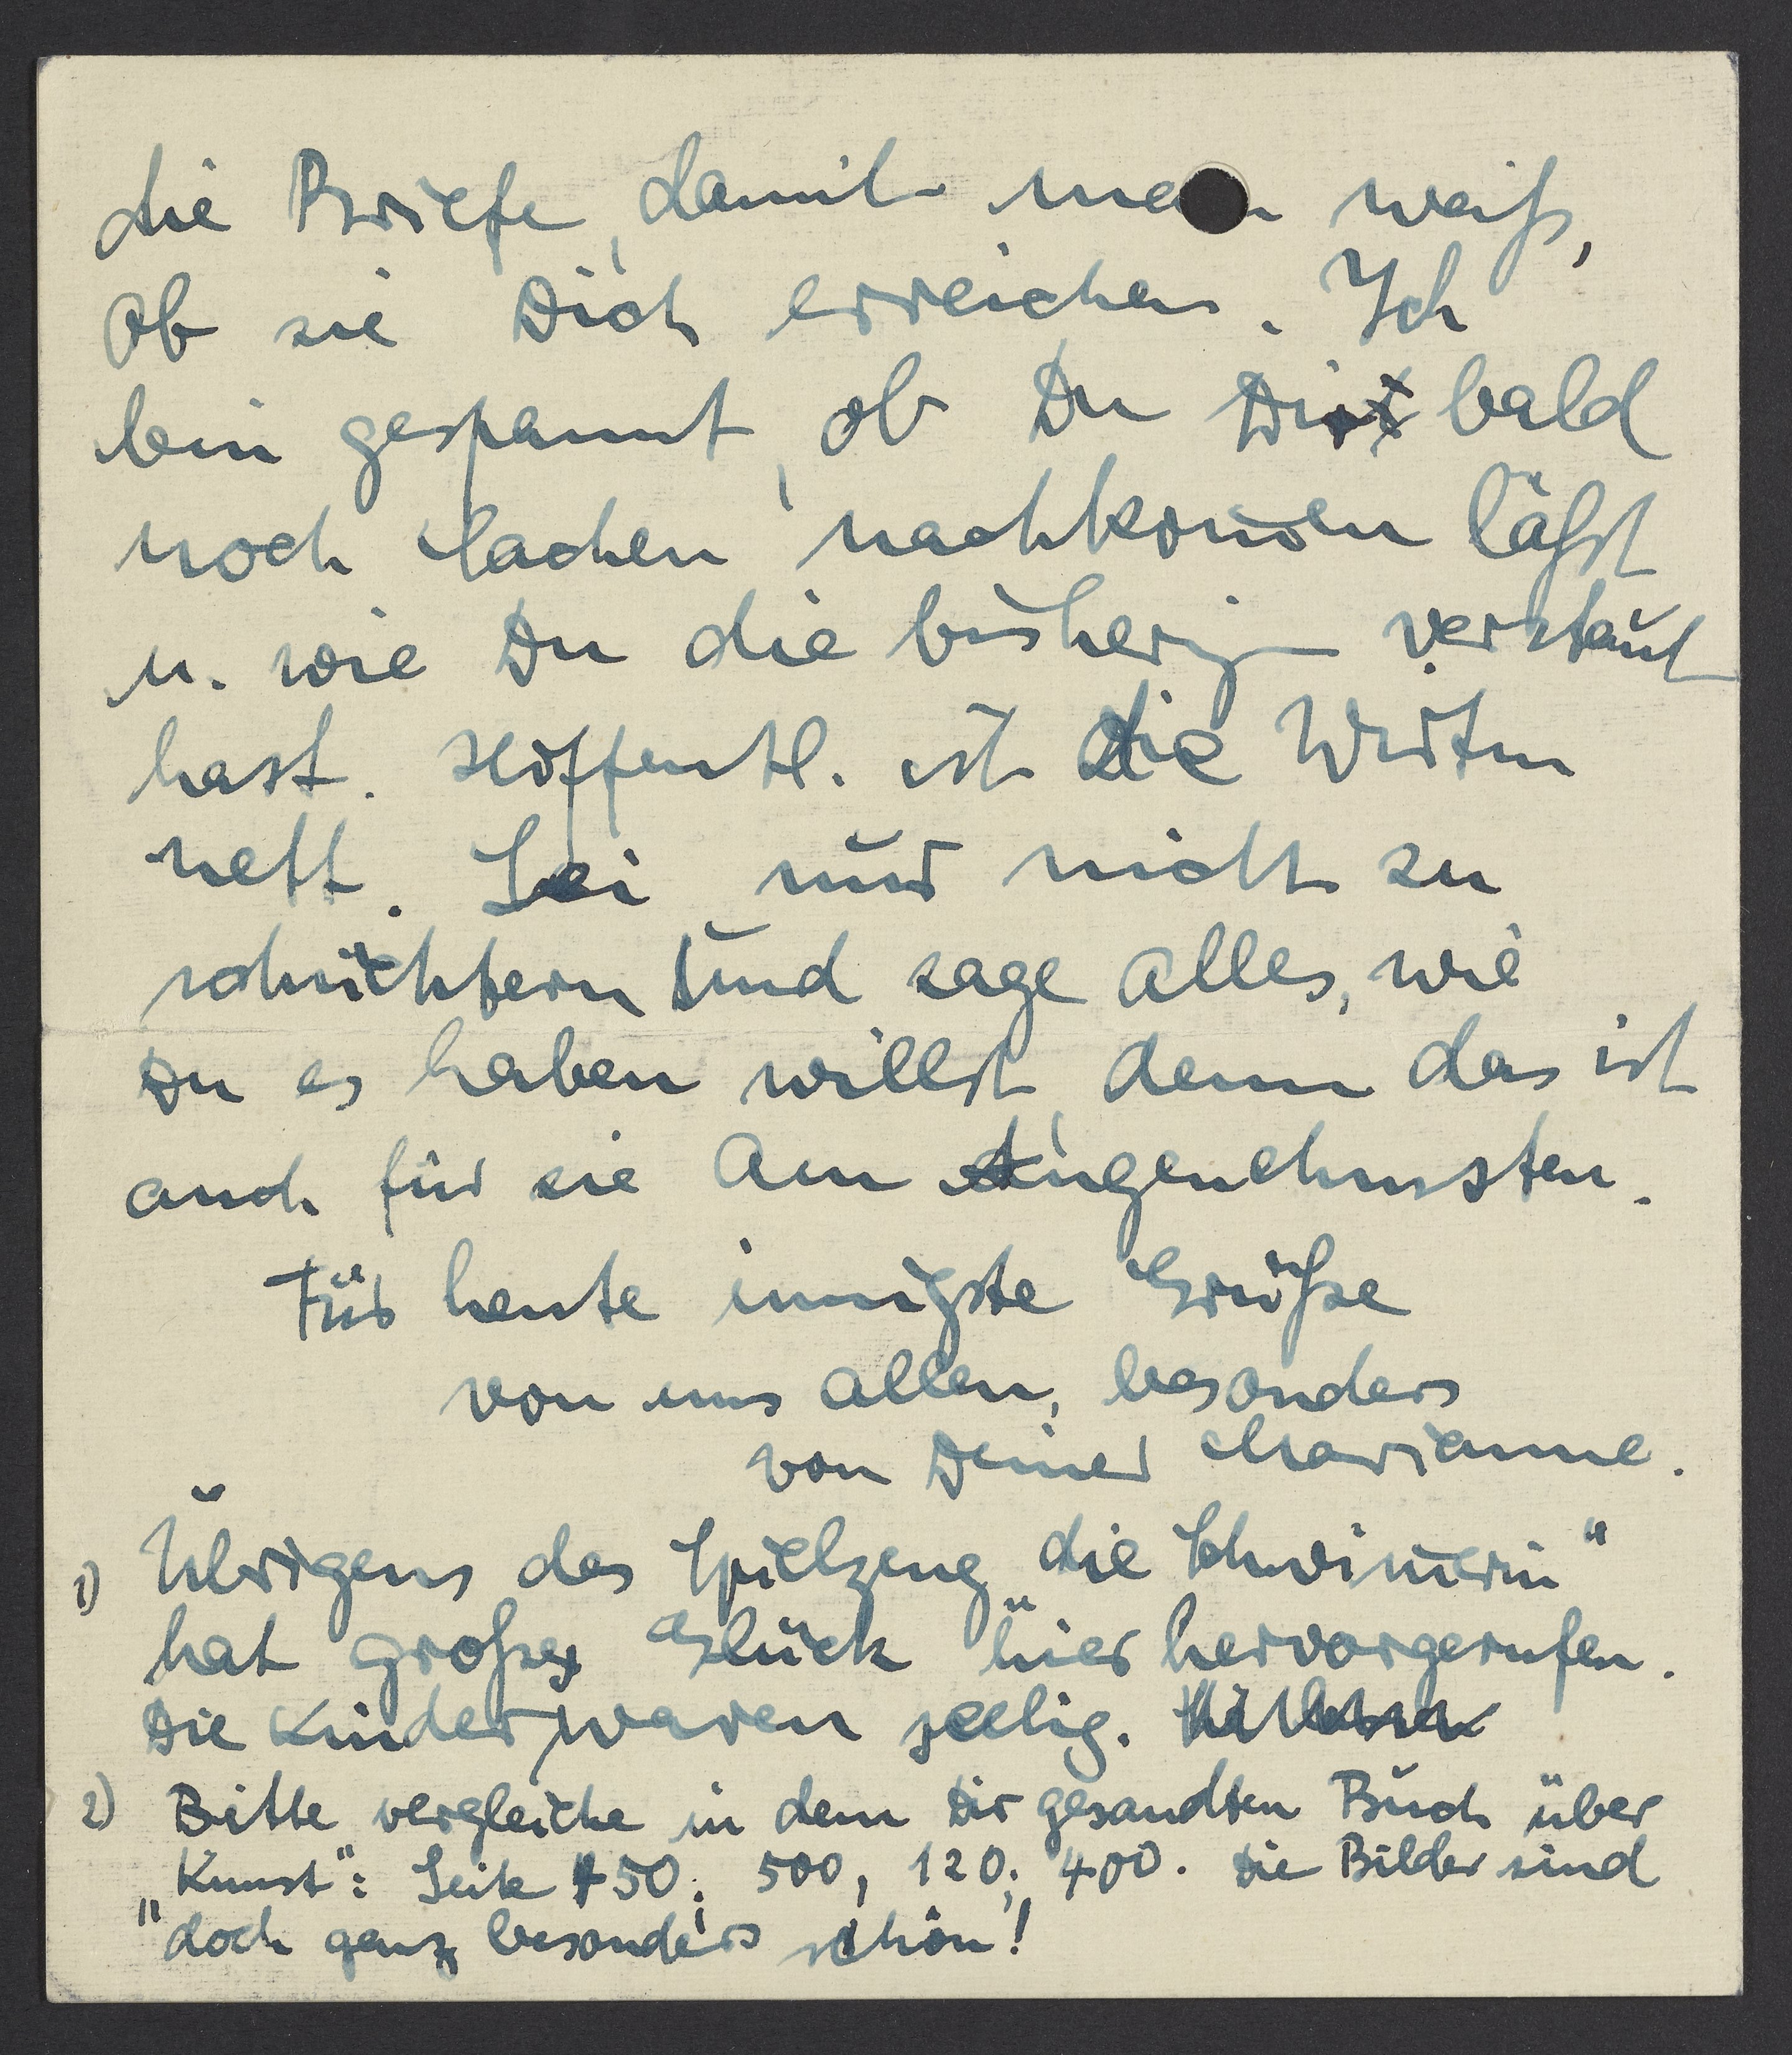 die Briefe, damit man weiß,
ob sie Dich erreichen. Ich
bin gespannt, ob Du Dir bald
noch Sachen nachkom̅en läßt
u. wie Du die bisherigen verstaut
hast. Hoffentl. ist die Wirtin
nett. Sei nur nicht zu
schüchtern und sage alles, wie
Du es haben willst, denn das ist
auch für sie am Angenehmsten.
Für heute innigste Grüße
von uns allen, besonders
von Deiner Marianne.
1) Übrigens das Spielzeug „die Schwim̅erin“
hat großes Glück hier hervorgerufen.
Die Kinder waren seelig.
2) Bitte vergleiche in dem Dir gesandten Buch über
„Kunst“: Seite 450; 500, 120; 400. Die Bilder sind
doch ganz besonders schön!